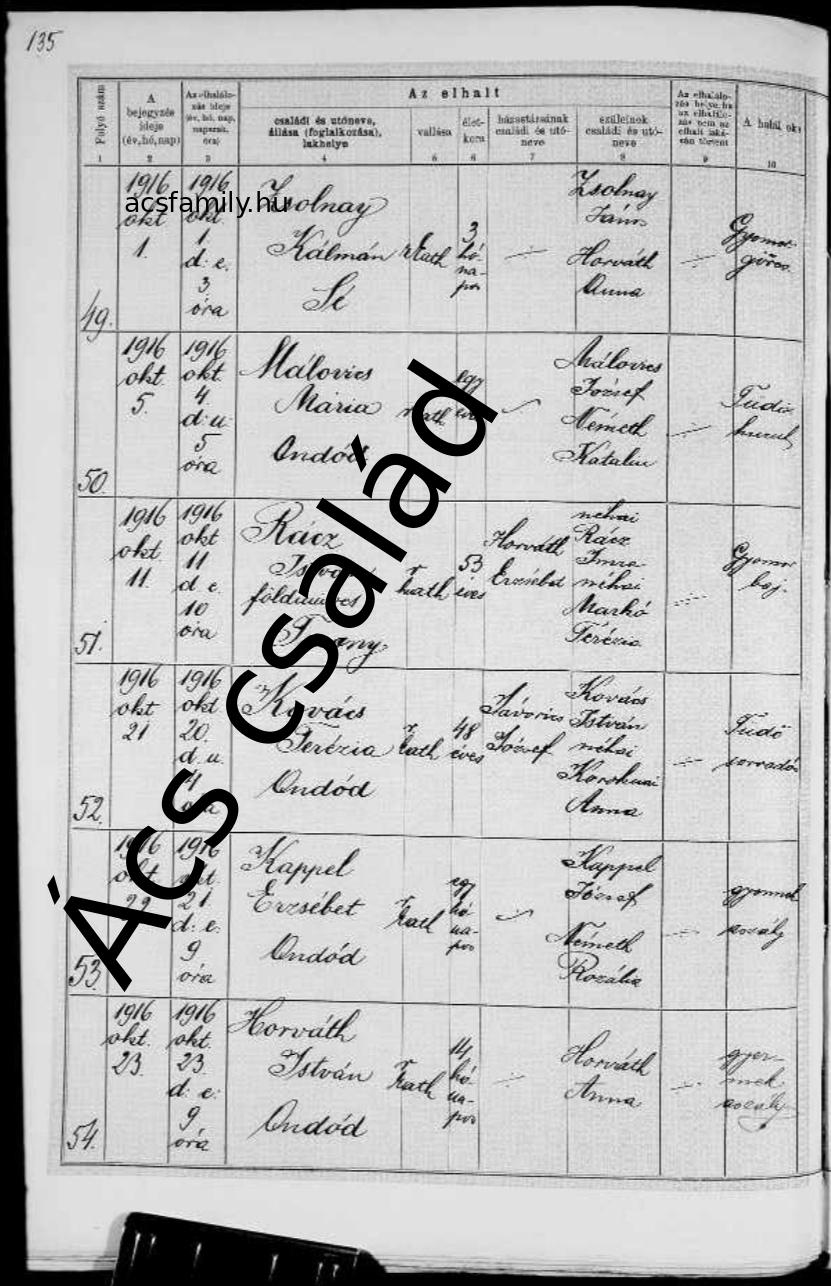 135
Folyó szám
A bejegyzés ideje (év, hó, nap)
Az elhalálozás ideje (év, hó, nap, napszak, óra)
Az elhalt
családi és utóneve, állása (foglalkozása), lakhelye
vallása
életkora
házastársának családi és utóneve
szüleinek családi és utóneve
Az elhalálozás helye, ha az elhalálozás nem az elhalt lakásán történt
A halál oka
1 2 3 4 5 6 7 8 9 10
acsfamily.hu
Ács család
49.
1916 okt 1.
1916 okt. 1. d: e. 3 óra
Zsolnay
Kálmán
Sé
r kath
3 hónapos
Zsolnay
János
Horváth
Anna
50.
1916 okt. 5.
1916 okt. 4. d: u: 5 óra
Málovics
Mária
Ondód
r kath
egy éves
Málovics
József
Németh
Katalin
51.
1916 okt. 11.
1916 okt 11 d e. 10 óra
Rácz
István
földműves
r kath
53 éves
Horváth
Erzsébet
néhai
Rácz
Imre
néhai
Markó
Terézia
Gyomor
baj.
52.
1916 okt 21
1916 okt 20. d. u. 4 óra
Kovács
Terézia
Ondód
r kath
48 éves
Távorics
József
Kovács
István
néhai
Anna
Tüdő
sorvadás
53.
1916 okt. 22
1916 okt. 21. d: e: 9 óra
Kappel
Erzsébet
Ondód
r kath
egy hónapos
Kappel
József
Németh
Rozália
54.
1916 okt. 23.
1916 okt. 23. d: e: 9 óra
Horváth
István
Ondód
r kath
14 hónapos
Horváth
Anna